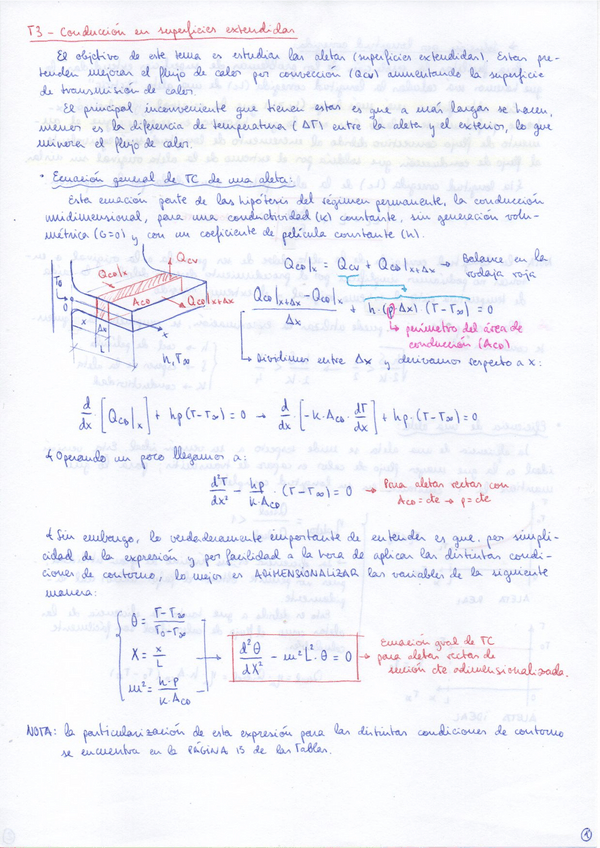 T3 - Conducción en superficies extendidas
El objetivo de este tema es estudiar las aletas (superficies extendidas). Estas pre-
tenden mejorar el flujo de calor por convección (Qcv) aumentando la superficie
de transmisión de calor.
El principal inconveniente que tienen estas es que a más largas se hacen,
menor es la diferencia de temperatura (ΔT) entre la aleta y el exterior, lo que
minora el flujo de calor.
* Ecuación general de TC de una aleta:
Esta ecuación parte de las hipótesis del régimen permanente, la conducción
unidimensional, para una conductividad (k) constante, sin generación volu-
métrica (G=0) y con un coeficiente de película constante (h).
T₀
0
x
Δx
L
Q_CD|x
Q_CV
A_CD
Q_CD|x+Δx
h, T∞
Q_CD|x = Q_CV + Q_CD|x+Δx → Balance en la
rodaja roja
(Q_CD|x+Δx - Q_CD|x)/Δx + h·(p·Δx)·(T-T∞) = 0
↳ perímetro del área de
conducción (A_CD)
↳ Dividimos entre Δx y derivamos respecto a x:
d/dx·[Q_CD|x] + hp(T-T∞) = 0 → d/dx·[-k·A_CD·dT/dx] + hp·(T-T∞) = 0
Operando un poco llegamos a:
d²T/dx² - hp/(k·A_CD)·(T-T∞) = 0 → Para aletas rectas con
A_CD = cte → p = cte
Sin embargo, lo verdaderamente importante de entender es que, por simpli-
cidad de la expresión y por facilidad a la hora de aplicar las distintas condi-
ciones de contorno, lo mejor es ADIMENSIONALIZAR las variables de la siguiente
manera:
θ = (T-T∞)/(T₀-T∞)
X = x/L
m² = h·p/(k·A_CD)
→ d²θ/dX² - m²L²·θ = 0 →
Ecuación gral de TC
para aletas rectas de
sección cte adimensionalizada.
NOTA: la particularización de esta expresión para las distintas condiciones de contorno
se encuentra en la PÁGINA 15 de las Tablas.
1